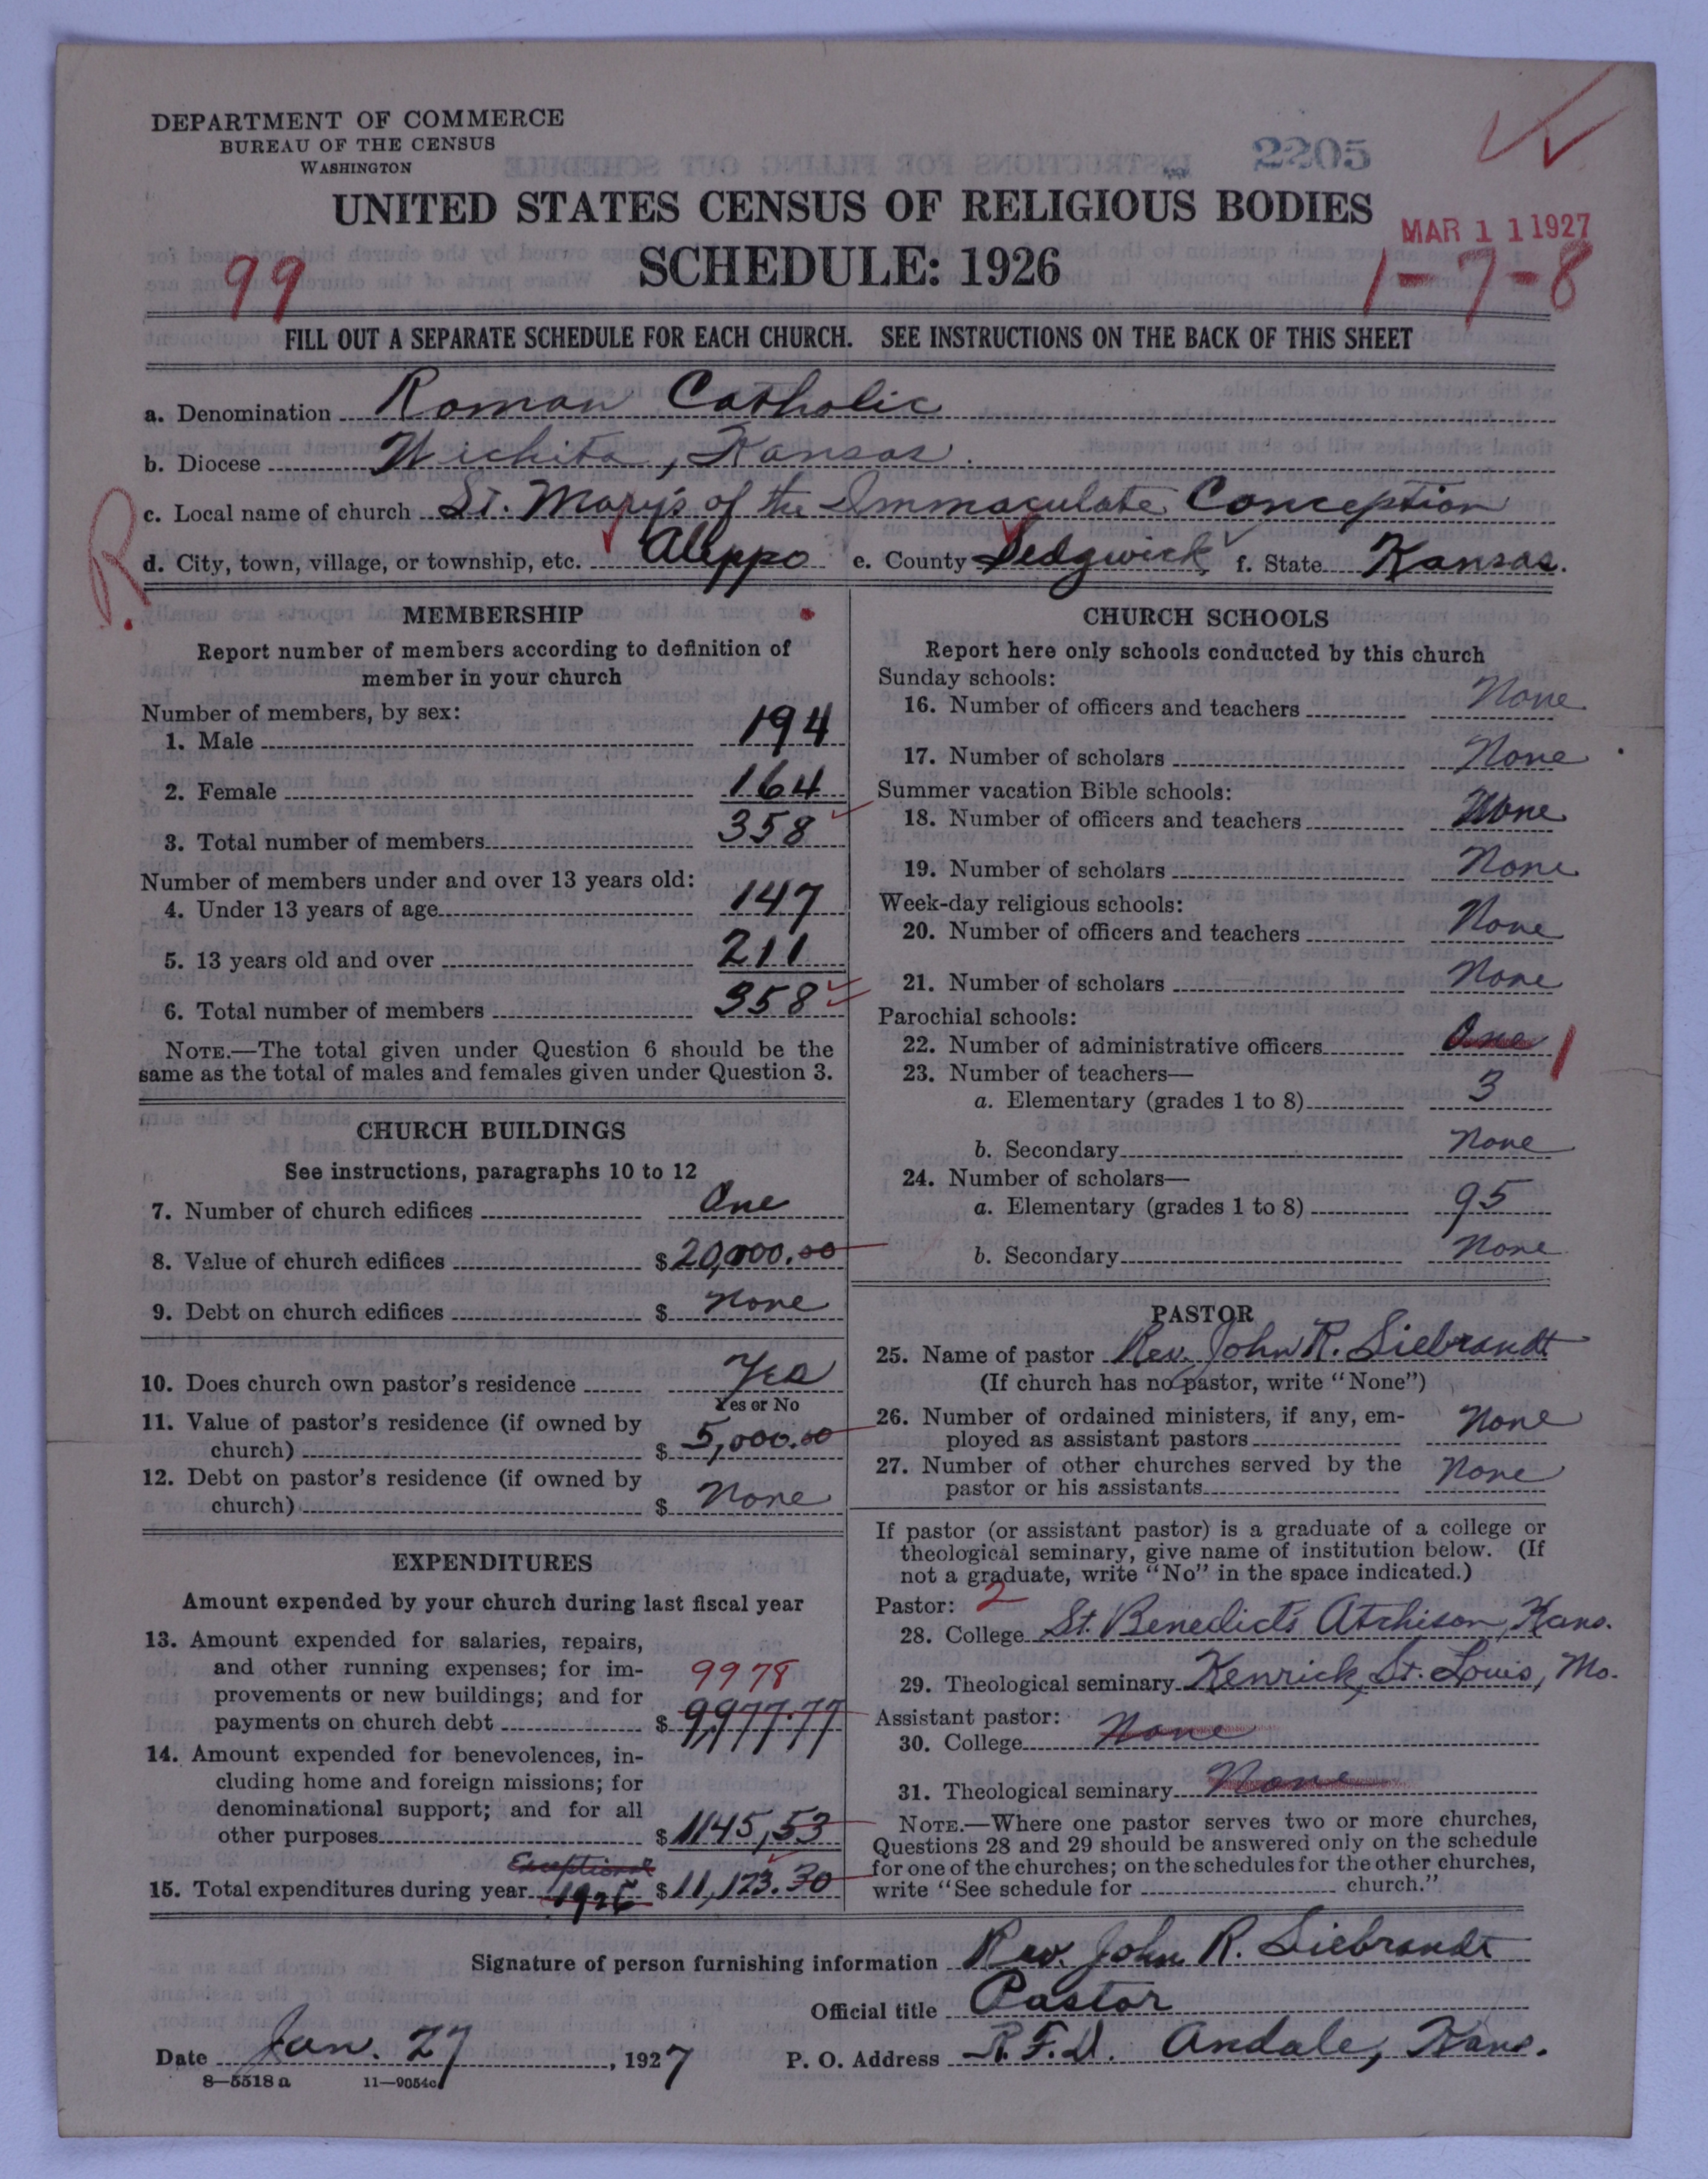 DEPARTMENT OF COMMERCE
BUREAU OF THE CENSUS
WASHINGTON
2205
UNITED STATES CENSUS OF RELIGIOUS BODIES
SCHEDULE: 1926
MAR 11 1927
99
1-7-8
FILL OUT A SEPARATE SCHEDULE FOR EACH CHURCH. SEE INSTRUCTIONS ON THE BACK OF THIS SHEET
a. Denomination Roman Catholic
b. Diocese Wichita, Kansas.
c. Local name of church St. Mary's of the Immaculate Conception
R
d. City, town, village, or township, etc. Aleppo e. County Sedgwick f. State Kansas.
MEMBERSHIP
Report number of members according to definition of
member in your church
Number of members, by sex:
1. Male 194
2. Female 164
3. Total number of members 358
Number of members under and over 13 years old:
4. Under 13 years of age 147
5. 13 years old and over 211
6. Total number of members 358
NOTE.—The total given under Question 6 should be the
same as the total of males and females given under Question 3.
CHURCH BUILDINGS
See instructions, paragraphs 10 to 12
7. Number of church edifices One
8. Value of church edifices $ 20,000.00
9. Debt on church edifices $ None
10. Does church own pastor's residence Yes
Yes or No
11. Value of pastor's residence (if owned by
church) $ 5,000.00
12. Debt on pastor's residence (if owned by
church) $ None
EXPENDITURES
Amount expended by your church during last fiscal year
13. Amount expended for salaries, repairs,
and other running expenses; for im-
9978
provements or new buildings; and for
payments on church debt $ 9,977.77
14. Amount expended for benevolences, in-
cluding home and foreign missions; for
denominational support; and for all
other purposes $ 1145,53
Exceptional
15. Total expenditures during year 1926 $ 11,123.30
CHURCH SCHOOLS
Report here only schools conducted by this church
Sunday schools:
16. Number of officers and teachers None
17. Number of scholars None
Summer vacation Bible schools:
18. Number of officers and teachers None
19. Number of scholars None
Week-day religious schools:
20. Number of officers and teachers None
21. Number of scholars None
Parochial schools:
22. Number of administrative officers One 1
23. Number of teachers—
a. Elementary (grades 1 to 8) 3
b. Secondary None
24. Number of scholars—
a. Elementary (grades 1 to 8) 95
b. Secondary None
PASTOR
25. Name of pastor Rev. John R. Siebrandt
(If church has no pastor, write "None")
26. Number of ordained ministers, if any, em-
ployed as assistant pastors None
27. Number of other churches served by the
pastor or his assistants None
If pastor (or assistant pastor) is a graduate of a college or
theological seminary, give name of institution below. (If
not a graduate, write "No" in the space indicated.)
Pastor: 2
28. College St. Benedicts Atchison, Kans.
29. Theological seminary Kenrick, St. Louis, Mo.
Assistant pastor:
30. College None
31. Theological seminary None
NOTE.—Where one pastor serves two or more churches,
Questions 28 and 29 should be answered only on the schedule
for one of the churches; on the schedules for the other churches,
write "See schedule for church."
Signature of person furnishing information Rev. John R. Siebrandt
Official title Pastor
Date Jan. 27, 1927 P. O. Address R.F.D. Andale, Kans.
8—5518 a 11—9054c